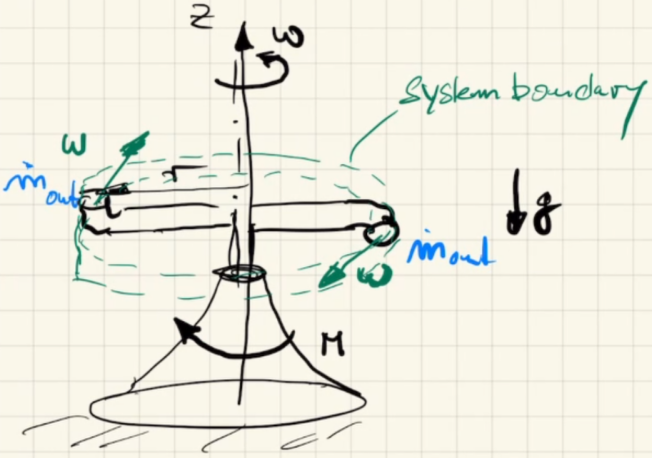 z
ω
system boundary
w
r
ṁout
g
ṁout
w
M